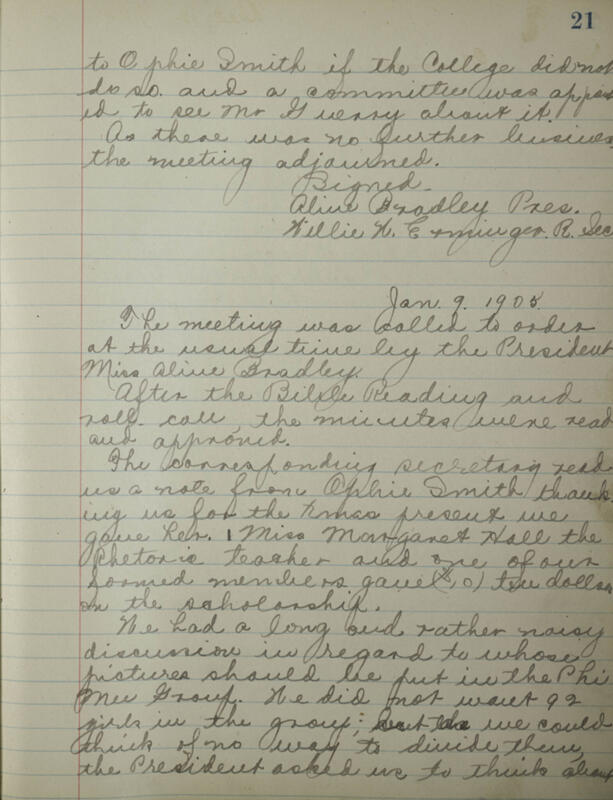 21
to Ophie Smith if the College did not
do so. and a committee was appoint
ed to see Mr Guerry about it.
As there was no further business
the meeting adjourned.
Signed.
Aline Bradley Pres.
Willie W. Erminger. R. Sec
Jan. 9. 1905.
The meeting was called to order
at the usual time by the President
Miss Aline Bradley.
After the Bible Reading and
roll call, the minutes were read
and approved.
The corresponding secretary read
us a note from Ophie Smith thank
ing us for the Xmas present we
gave her. Miss Margaret Hall the
Rhetoric teacher and one of our
formed members gave ten dollars
on the scholarship.
We had a long and rather noisy
discussion in regard to whose
pictures should be put in the Phi
Mu Group. We did not want 92
girls in the group; we could
think of no way to divide them,
the President asked us to think about